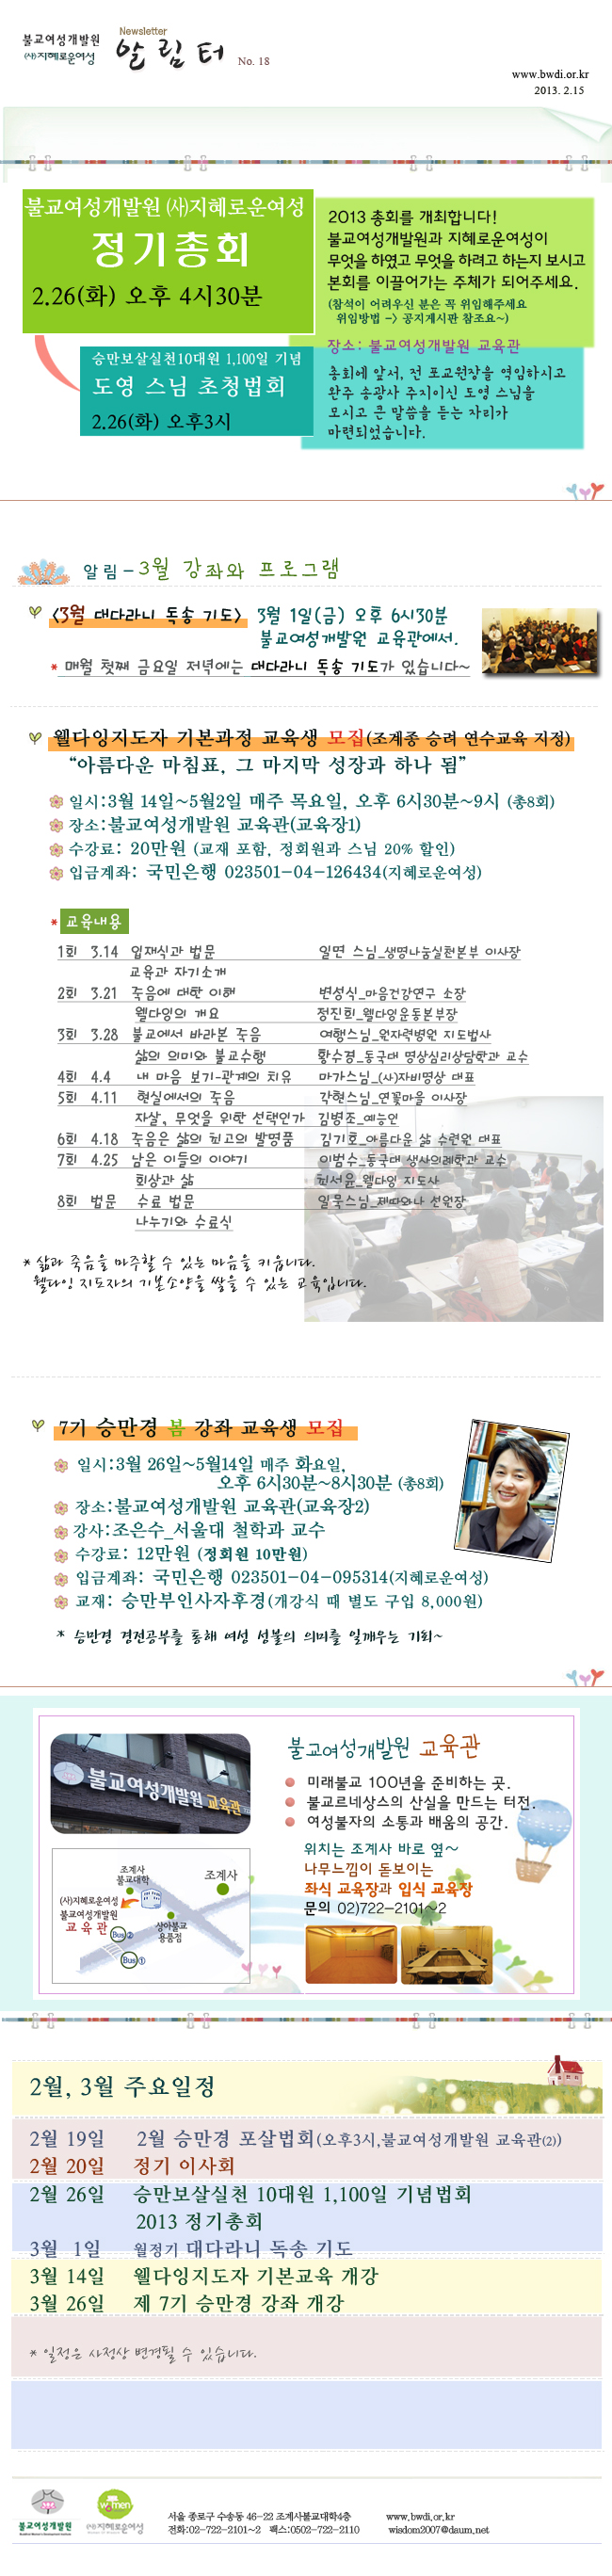 불교여성개발원
(사)지혜로운여성
Newsletter
알림터
No. 18
www.bwdi.or.kr
2013. 2.15
불교여성개발원 (사)지혜로운여성
정기총회
2.26(화) 오후 4시30분
2013 총회를 개최합니다!
불교여성개발원과 지혜로운여성이
무엇을 하였고 무엇을 하려고 하는지 보시고
본회를 이끌어가는 주체가 되어주세요.
(참석이 어려우신 분은 꼭 위임해주세요
위임방법 -> 공지게시판 참조요~)
장소: 불교여성개발원 교육관
승만보살실천10대원 1,100일 기념
도영 스님 초청법회
2.26(화) 오후3시
총회에 앞서, 전 포교원장을 역임하시고
완주 송광사 주지이신 도영 스님을
모시고 큰 말씀을 듣는 자리가
마련되었습니다.
알림-3월 강좌와 프로그램
<3월 대다라니 독송 기도> 3월 1일(금) 오후 6시30분
불교여성개발원 교육관에서.
* 매월 첫째 금요일 저녁에는 대다라니 독송 기도가 있습니다~
웰다잉지도자 기본과정 교육생 모집(조계종 승려 연수교육 지정)
“아름다운 마침표, 그 마지막 성장과 하나 됨”
일시:3월 14일~5월2일 매주 목요일, 오후 6시30분~9시 (총8회)
장소:불교여성개발원 교육관(교육장1)
수강료: 20만원 (교재 포함, 정회원과 스님 20% 할인)
입금계좌: 국민은행 023501-04-126434(지혜로운여성)
* 교육내용
1회 3.14 입재식과 법문 일면 스님_생명나눔실천본부 이사장
교육과 자기소개
2회 3.21 죽음에 대한 이해 변성식_마음건강연구 소장
웰다잉의 개요 정진희_웰다잉운동본부장
3회 3.28 불교에서 바라본 죽음 여행스님_원자력병원 지도법사
삶의 의미와 불교수행 황수경_동국대 명상심리상담학과 교수
4회 4.4 내 마음 보기-관계의 치유 마가스님_(사)자비명상 대표
5회 4.11 현실에서의 죽음 각현스님_연꽃마을 이사장
자살, 무엇을 위한 선택인가 김병조_예능인
6회 4.18 죽음은 삶의 최고의 발명품 김기호_아름다운 삶 수련원 대표
7회 4.25 남은 이들의 이야기 이범수_동국대 생사의례학과 교수
회상과 삶 최선윤_웰다잉 지도사
8회 법문 수료 법문 일묵스님_제따와나 선원장
나누기와 수료식
* 삶과 죽음을 마주할 수 있는 마음을 키웁니다.
웰다잉 지도자의 기본소양을 쌓을 수 있는 교육입니다.
7기 승만경 봄 강좌 교육생 모집
일시:3월 26일~5월14일 매주 화요일,
오후 6시30분~8시30분 (총8회)
장소:불교여성개발원 교육관(교육장2)
강사:조은수_서울대 철학과 교수
수강료: 12만원 (정회원 10만원)
입금계좌: 국민은행 023501-04-095314(지혜로운여성)
교재: 승만부인사자후경(개강식 때 별도 구입 8,000원)
* 승만경 경전공부를 통해 여성 성불의 의미를 일깨우는 기회~
불교여성개발원 교육관
불교여성개발원 교육관
미래불교 100년을 준비하는 곳.
불교르네상스의 산실을 만드는 터전.
여성불자의 소통과 배움의 공간.
위치는 조계사 바로 옆~
나무느낌이 돋보이는
좌식 교육장과 입식 교육장
문의 02)722-2101~2
조계사
불교대학
조계사
(사)지혜로운여성
불교여성개발원
교 육 관
상아불교
용품점
Bus②
Bus①
2월, 3월 주요일정
2월 19일 2월 승만경 포살법회(오후3시,불교여성개발원 교육관(2))
2월 20일 정기 이사회
2월 26일 승만보살실천 10대원 1,100일 기념법회
2013 정기총회
3월 1일 월정기 대다라니 독송 기도
3월 14일 웰다잉지도자 기본교육 개강
3월 26일 제 7기 승만경 강좌 개강
* 일정은 사정상 변경될 수 있습니다.
불교여성개발원
women
지혜로운여성
서울 종로구 수송동 46-22 조계사불교대학4층 www.bwdi.or.kr
전화:02-722-2101~2 팩스:0502-722-2110 wisdom2007@daum.net